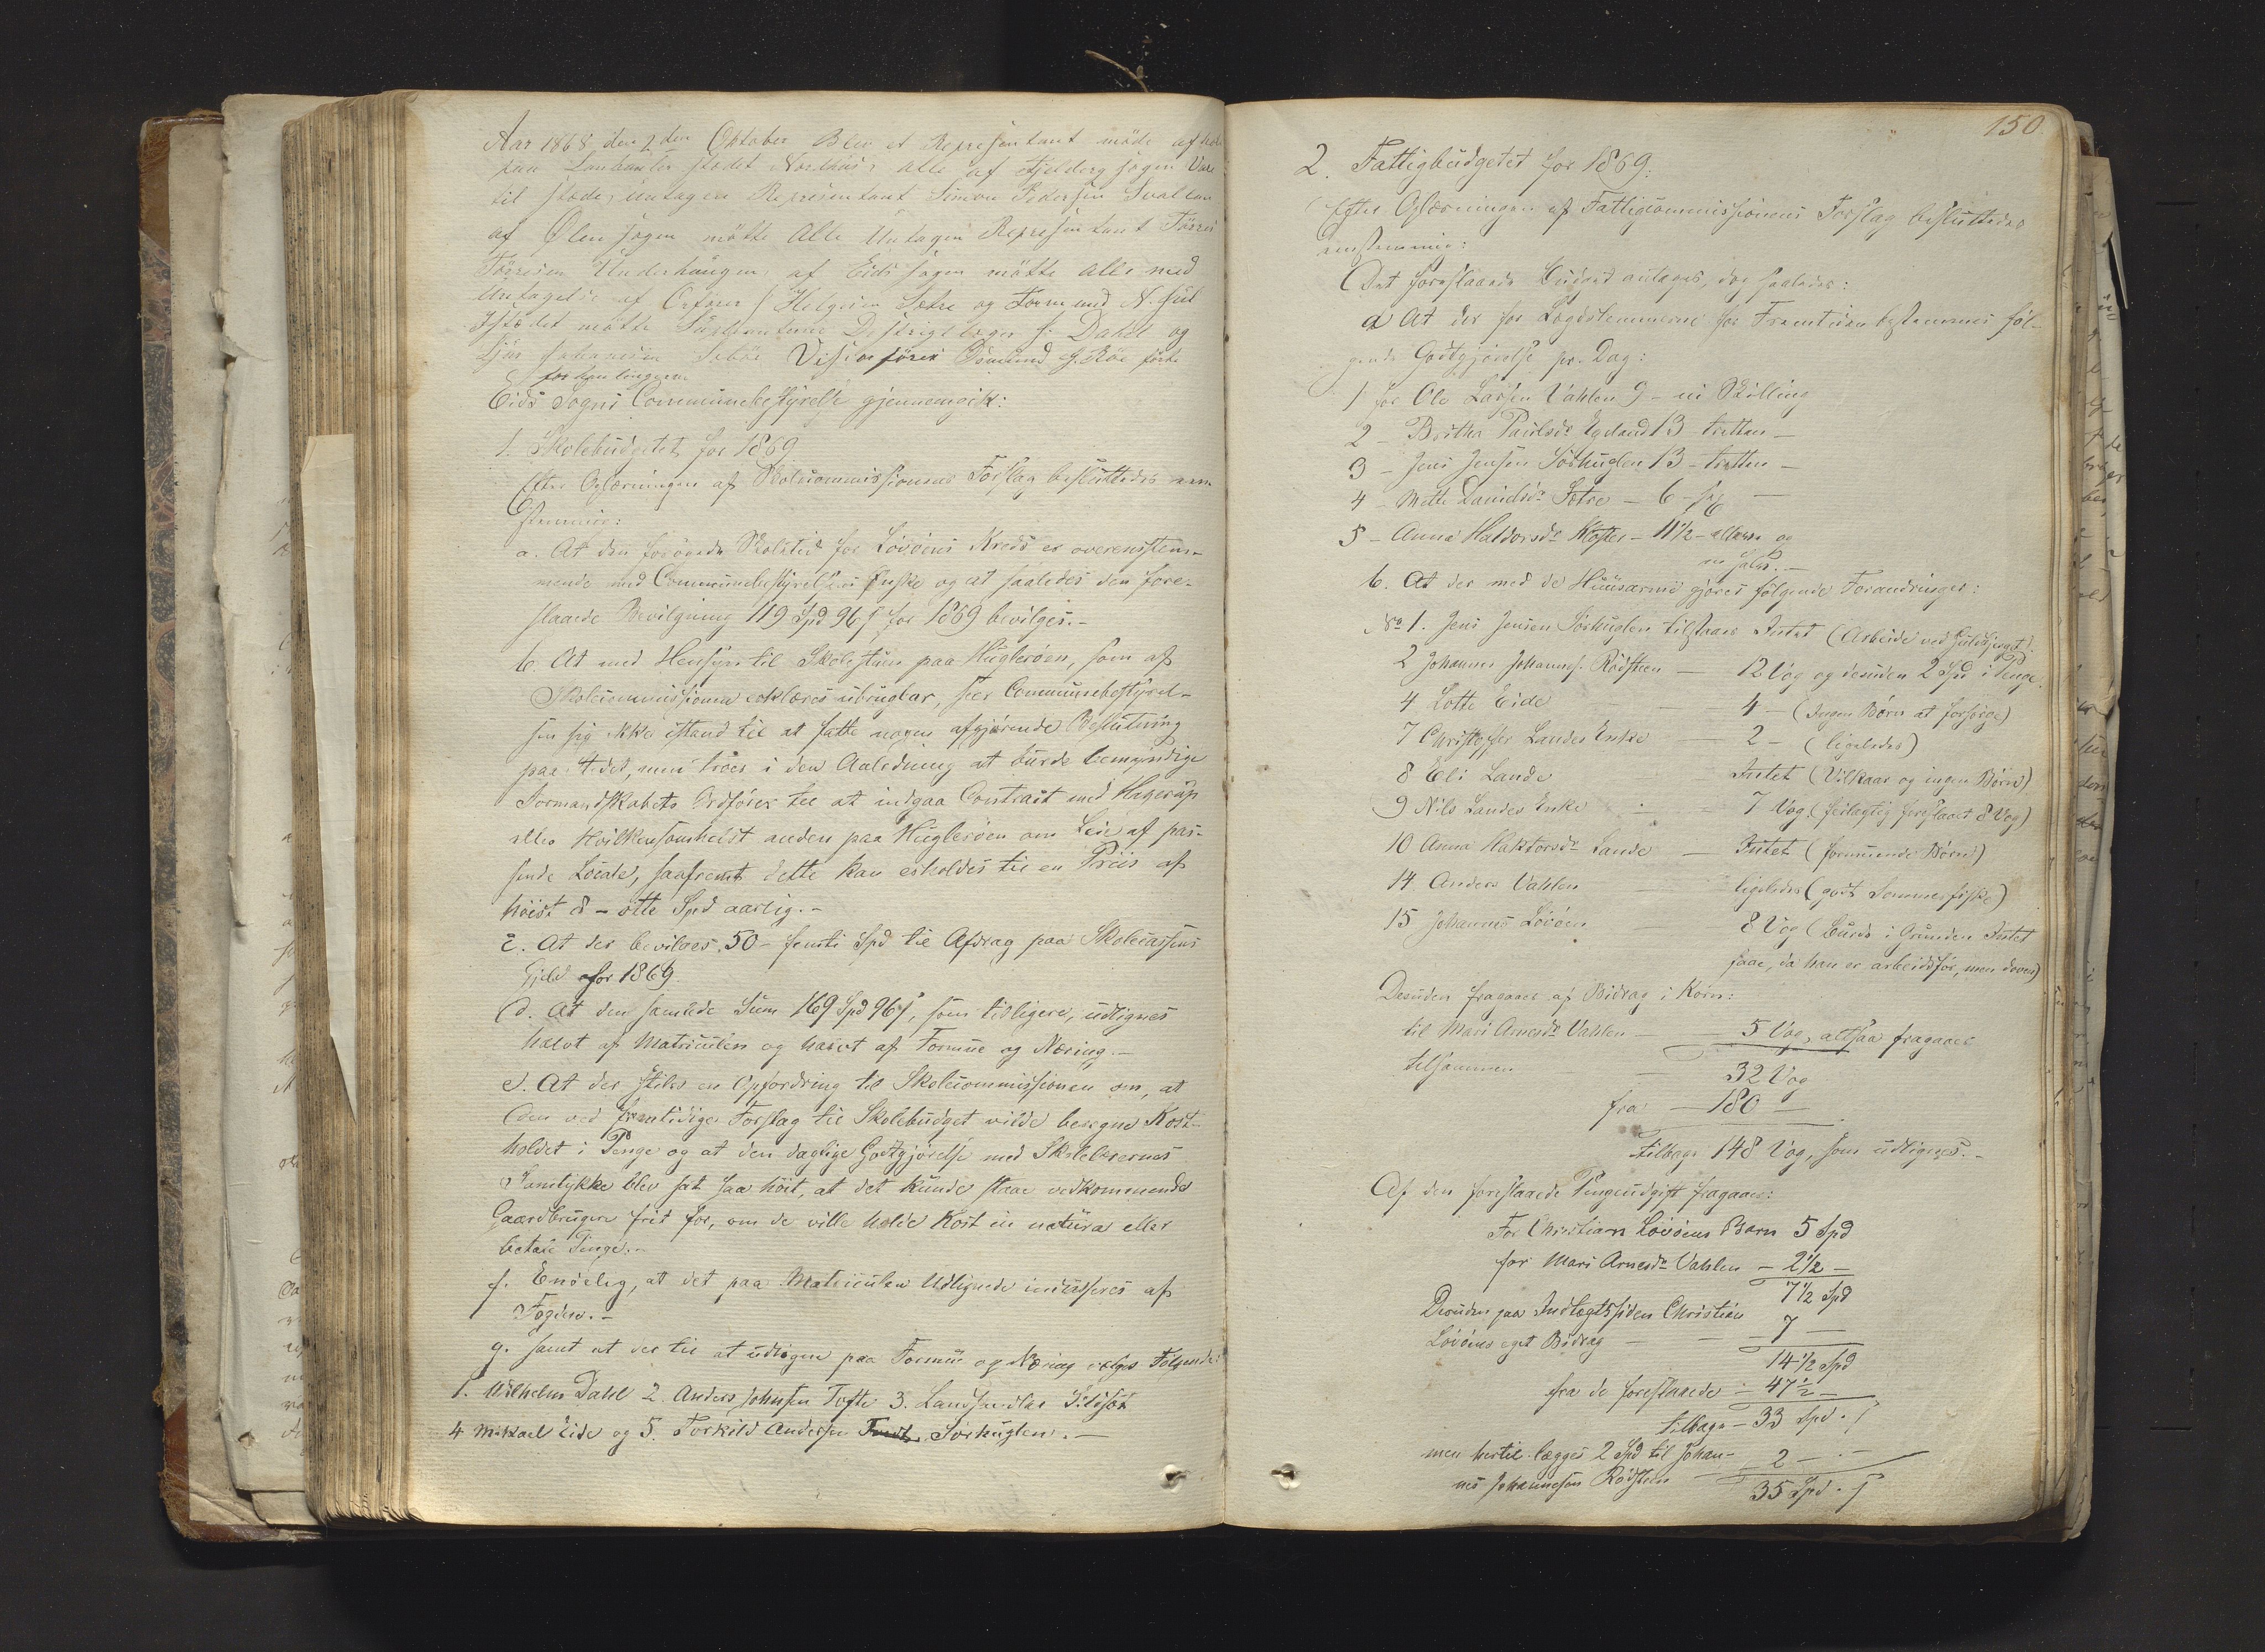 Aar 1868 den 2den Oktober Blev et Represintant möde afhold
paa Lenhandler stedet Nordhuus, alle af Fjelberg sogen Vare
til stede, untagen Represintant Simon Pedersen Svallan
af Ølen sogen mötte Alle Untagen Represintant Törris
Törresen Underhaugen, af Eids sogen mötte alle med
Untagelse af Helgesen Sætre og Tormund N.
Istedet mötte Suplianterne Distrigtlæge Dahl og
Sjur Johannesen Sebøe Vissordförer Ósmund J. Röe förte
forhanlingen.
Eids Sogns Communebestyrelse gjennemgik:
1. Skolebudgetet for 1869
Efter Oplæsningen af Skolecommissionens Forslag besluttedes een-
stemmig:
a. At den forøgede Skoletid for Løvøens Kreds er overensstem-
mende med Communebestyrelsens Ønske og at saaledes den fore-
slaaede Bevilgning 119 Spd 96 s for 1869 bevilges.-
b. At med Hensyn til Skolestuen paa Huglerøen, som af
Skolecommissionen erklæres ubrugbar, seer Communebestyrel-
sen sig ikke istand til at fatte nogen afgjørende Beslutning
paa Stedet, men troer i den Anledning at burde bemyndige
Formandskabets Ordfører til at indgaa Contract med Hagerup
eller hvilkensomhelst anden paa Huglerøen om Leie af pas-
sende Locale, saafremt dette kan erholdes til en Priis af
höist 8 - otte Spd aarlig.-
c. At der bevilges 50 - femti Spd til Afdrag paa Skolecassens
Gjeld for 1869.
d. At den samlede Sum 169 Spd 96 s, som tidligere, udlignes
halvt af Matriculen og halvt af Formue og Næring.-
e. At der stiles en Opfordring til Skolecommissionen om, at
den ved fremtidige Forslag til Skolebudget vilde beregne Kost-
holdet i Penge og at den daglige Godtgjørelse med Skolelærernes
Samtykke blev sat saa høit, at det kunde staae vedkommende
Gaardbrugere frit for, om de ville holde Kost in natura eller
betale Penge.-
f. Endelig, at det paa Matriculen Udlignede inddrives af
Fogden.-
g. samt at der til at udligne paa Formue og Næring vælges Følgende:
1. Wilhelm Dahl 2. Anders Johnsen Tofte 3. Landhandler Sildsöt
4 Mikael Eide og 5. Torkild Andersen Sørhuglen.-
150.
2. Fattigbudgetet for 1869:
Efter Oplæsningen af Fattigcommissionens Forslag besluttedes
eenstemmig:
Det foreslaaede Budget antages, dog saaledes:
a At der for Lægdslemmerne for Fremtiden bestemmes føl-
gende Godtgjørelse pr. Dag:
1 for Ole Larsen Vahlen 9 - ni Skilling
2 - Britha Paulsdr Egeland 13 - tretten -
3 - Jens Jensen Sörhuglen 13 - tretten -
4 - Mette Davidsdr Sætre - 6 - sex -
5 - Anna Haldorsdr Kloster - 11½ - elleve og
en halv.-
b. At der med de Huusarme gjøres følgende Forandringer:
No 1. Jens Jensen Sørhuglen tilstaaes Intet (Arbeide ved Guldbjerget).
2 Johannes Johannes. Rødsteen - 12 Vog og desuden 2 Spd i Penge.
4 Lotte Eide - 4 - (Ingen Børn at forsørge)
7 Christoffer Landes Enke - 2 - (ligeledes)
8 Eli Lande - Intet (Vilkaar og ingen Børn)
9 Nils Landes Enke - 7 Vog. (feilagtig foreslaaet 8 Vog)
10 Anna Haktorsdr Lande - Intet (formuende Børn)
14 Anders Vahlen - ligeledes (godt Sommerfiske)
15 Johannes Løvøen - 8 Vog (burde i Grunden Intet
faae, da han er arbeidsför, men doven)
Desuden fragaaer af Bidrag i Korn:
til Mari Arnesdr Vahlen - 5 Vog, altsaa fragaaer
tilsammen - 32 Vog
fra - 180 -
tilbage 148 Vog, som udlignes.-
Af den foreslaaede Pengeudgift fragaaer:
For Christian Løvøens Barn 5 Spd
for Mari Arnesdr Vahlen - 2½ -
7½ Spd
Desuden paa Indtægtssiden Christian
Løvøens eget Bidrag - 7 -
14½ Spd
fra de foreslaaede - 47½ -
tilbage - 33 Spd. s
men hertil lægges 2 Spd til Johan-
nes Johannesen Rødsteen - 2 -
35 Spd. s